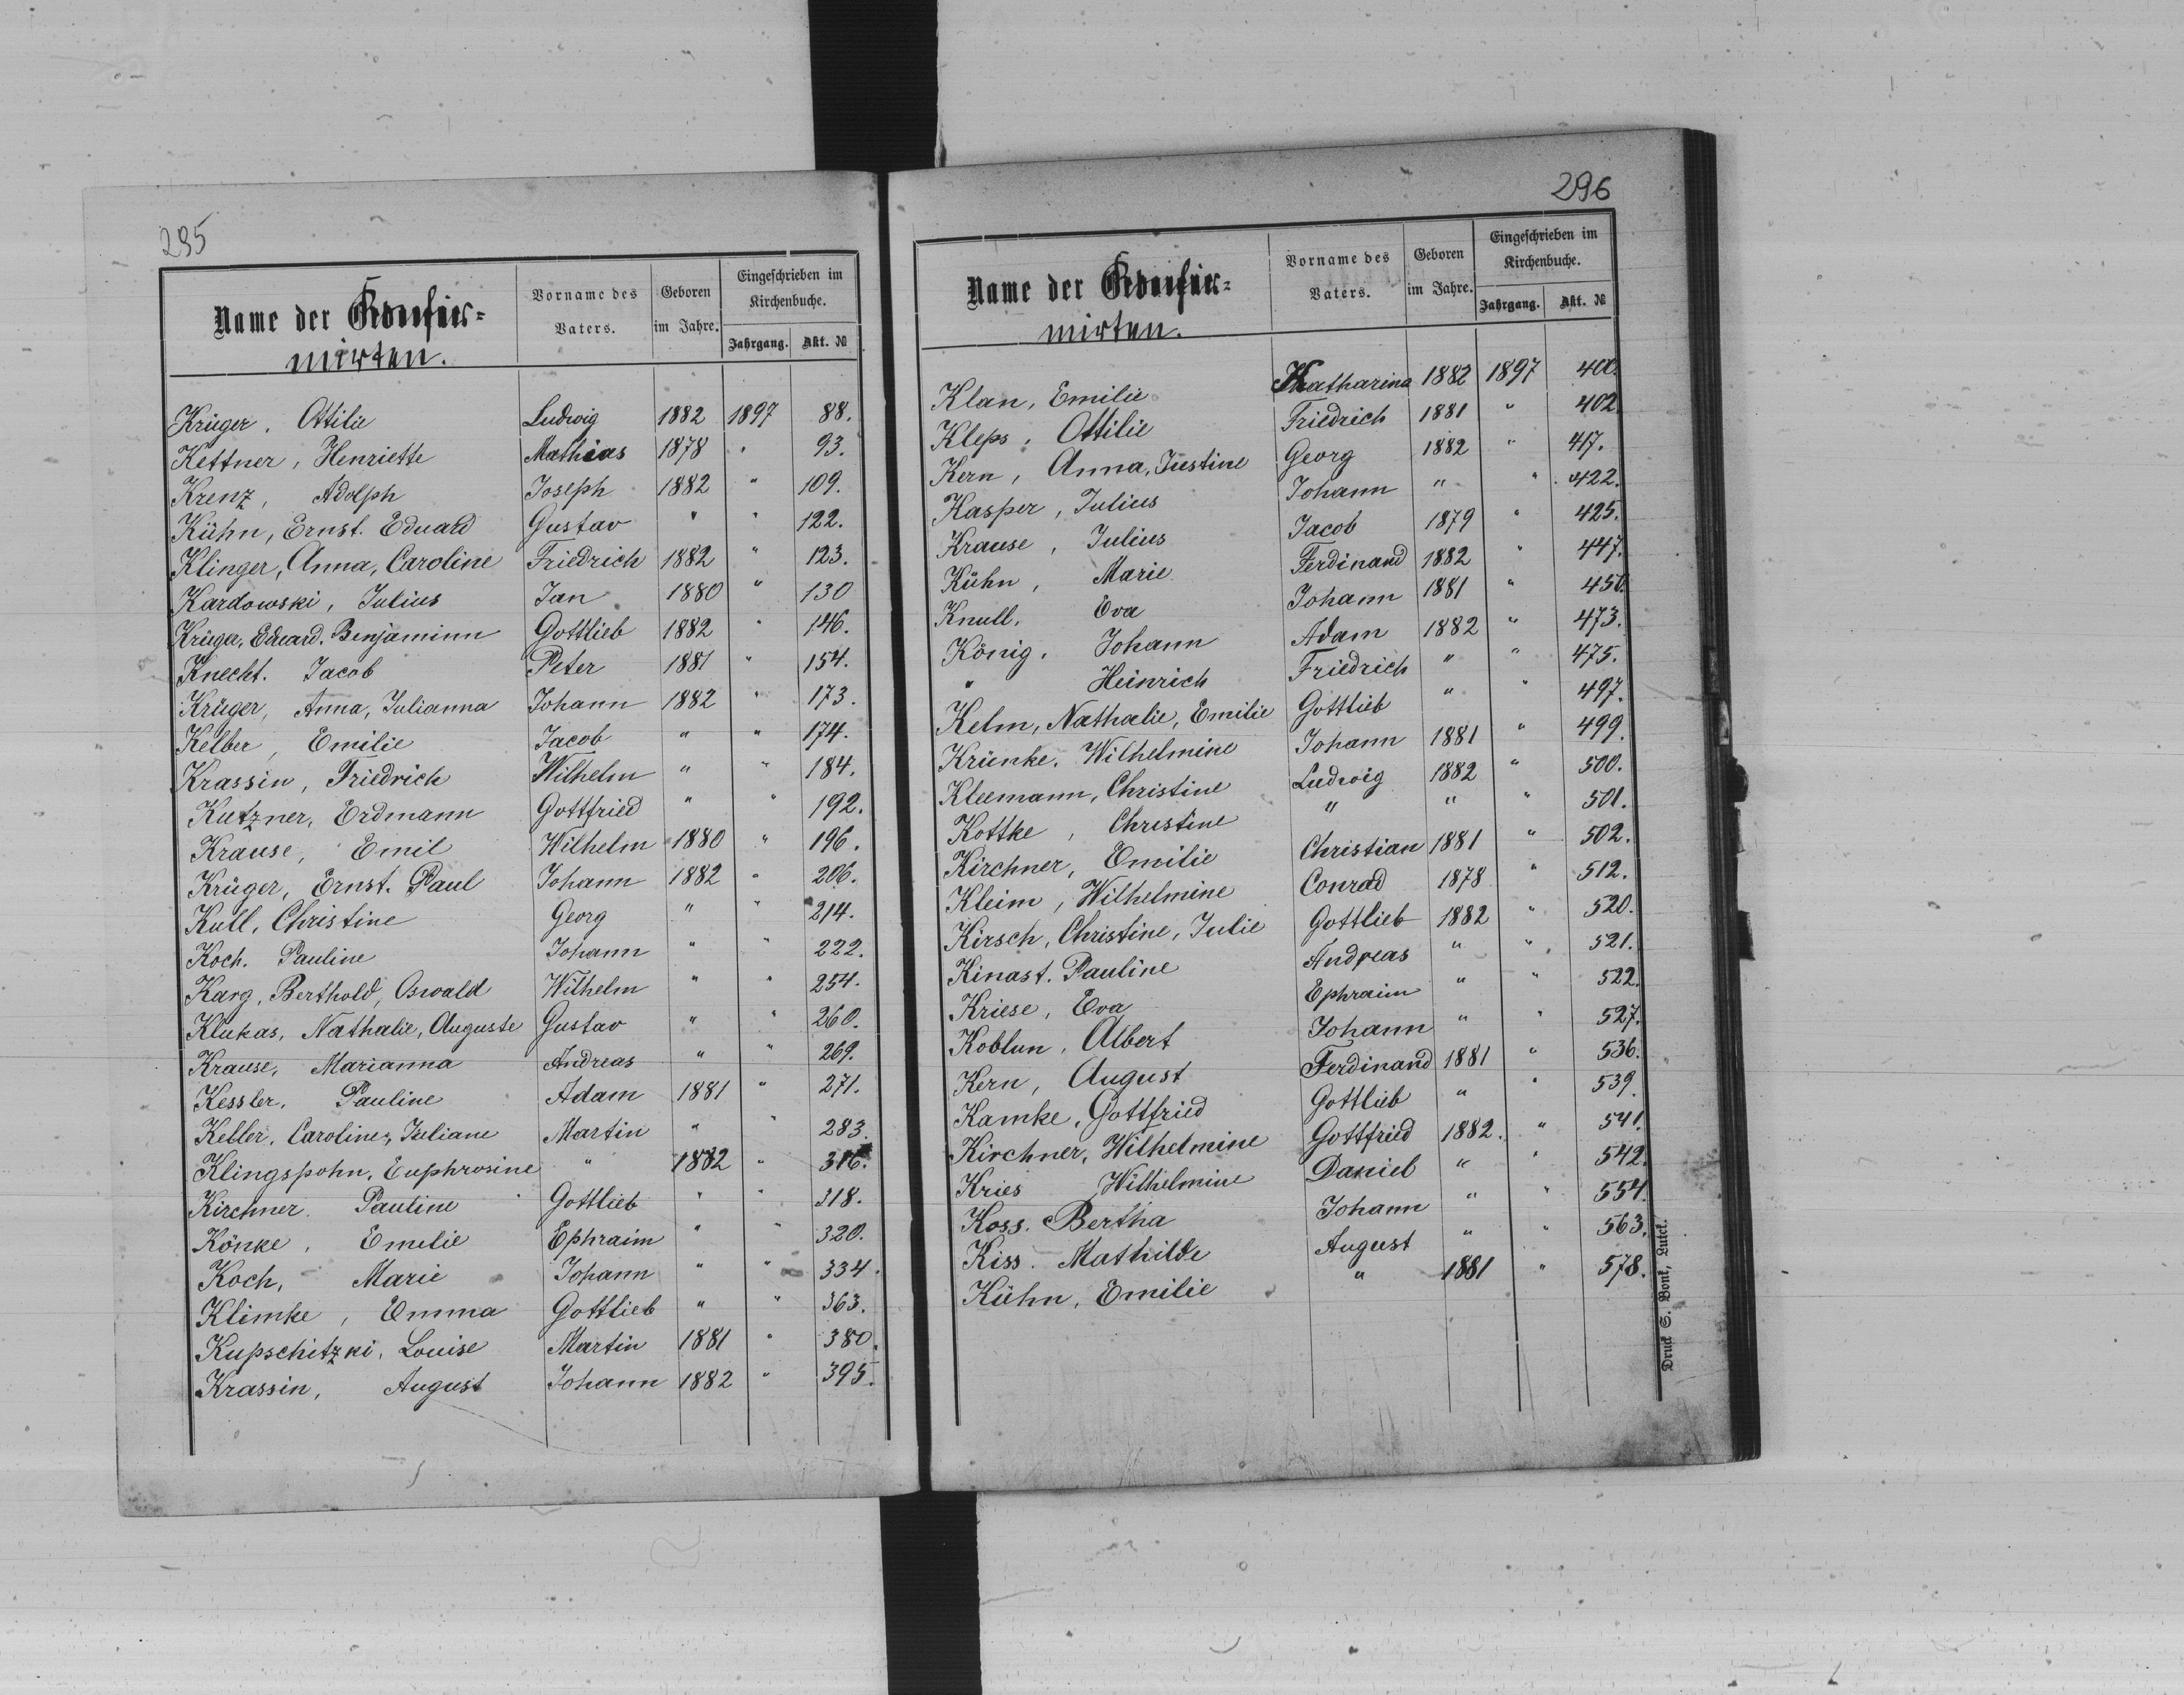 295
Name der Konfir=
mirten.
Vorname des Vaters.
Geboren im Jahre.
Eingeschrieben im Kirchenbuche.
Jahrgang. Akt. №
Krüger, Ottilie Ludwig 1882 1897 88.
Kettner, Henriette Mathias 1878 " 93.
Krenz, Adolph Joseph 1882 " 109.
Kühn, Ernst. Eduard Gustav " " 122.
Klinger, Anna, Caroline Friedrich 1882 " 123.
Kardowski, Julius Jan 1880 " 130
Krüger, Eduard. Benjaminn Gottlieb 1882 " 146.
Knecht. Jacob Peter 1881 " 154.
Krüger, Anna, Julianna Johann 1882 " 173.
Kelber, Emilie Jacob " " 174.
Krassin, Friedrich Wilhelm " " 184.
Kutzner, Erdmann Gottfried " " 192.
Krause, Emil Wilhelm 1880 " 196.
Krüger, Ernst. Paul Johann 1882 " 206.
Kutl, Christine Georg " " 214.
Koch. Pauline Johann " " 222.
Karg, Berthold, Oswald Wilhelm " " 254.
Klukas, Nathalie, Auguste Gustav " " 260.
Krause, Marianna Andreas " " 269.
Kessler, Pauline Adam 1881 " 271.
Keller, Caroline, Juliane Martin " " 283.
Klingspohn, Euphrosine " 1882 " 316.
Kirchner. Pauline Gottlieb " " 318.
Könke, Emilie Ephraim " " 320.
Koch, Marie Johann " " 334.
Klimke, Emma Gottlieb " " 363.
Kupschitzki, Louise Martin 1881 " 380.
Krassin, August Johann 1882 " 395.
296
Name der Konfir=
mirten.
Vorname des Vaters.
Geboren im Jahre.
Eingeschrieben im Kirchenbuche.
Jahrgang. Akt. №
Klan, Emilie Katharina 1882 1897 400.
Kleps, Ottilie Friedrich 1881 " 402.
Kern, Anna, Justine Georg 1882 " 417.
Kasper, Julius Johann " " 422.
Krause, Julius Jacob 1879 " 425.
Kühn, Marie Ferdinand 1882 " 447.
Knull, Eva Johann 1881 " 450.
König. Johann Adam 1882 " 473.
" Heinrich Friedrich " " 475.
Kelm, Nathalie, Emilie Gottlieb " " 497.
Krünke, Wilhelmine Johann 1881 " 499.
Kleemann, Christine Ludwig 1882 " 500.
Kottke, Christine " " " 501.
Kirchner, Emilie Christian 1881 " 502.
Kleim, Wilhelmine Conrad 1878 " 512.
Kirsch, Christine, Julie Gottlieb 1882 " 520.
Kinast. Pauline Andreas " " 521.
Kriese, Eva Ephraim " " 522.
Koblun, Albert Johann " " 527.
Kern, August Ferdinand 1881 " 536.
Kamke, Gottfried Gottlieb " " 539.
Kirchner, Wilhelmine Gottfried 1882. " 541.
Kries Wilhelmine Daniel " " 542.
Koss. Bertha Johann " " 554.
Kiss. Mathilde August " " 563.
Kühn, Emilie " 1881 " 578.
Druck S. Bonk, Lutck.